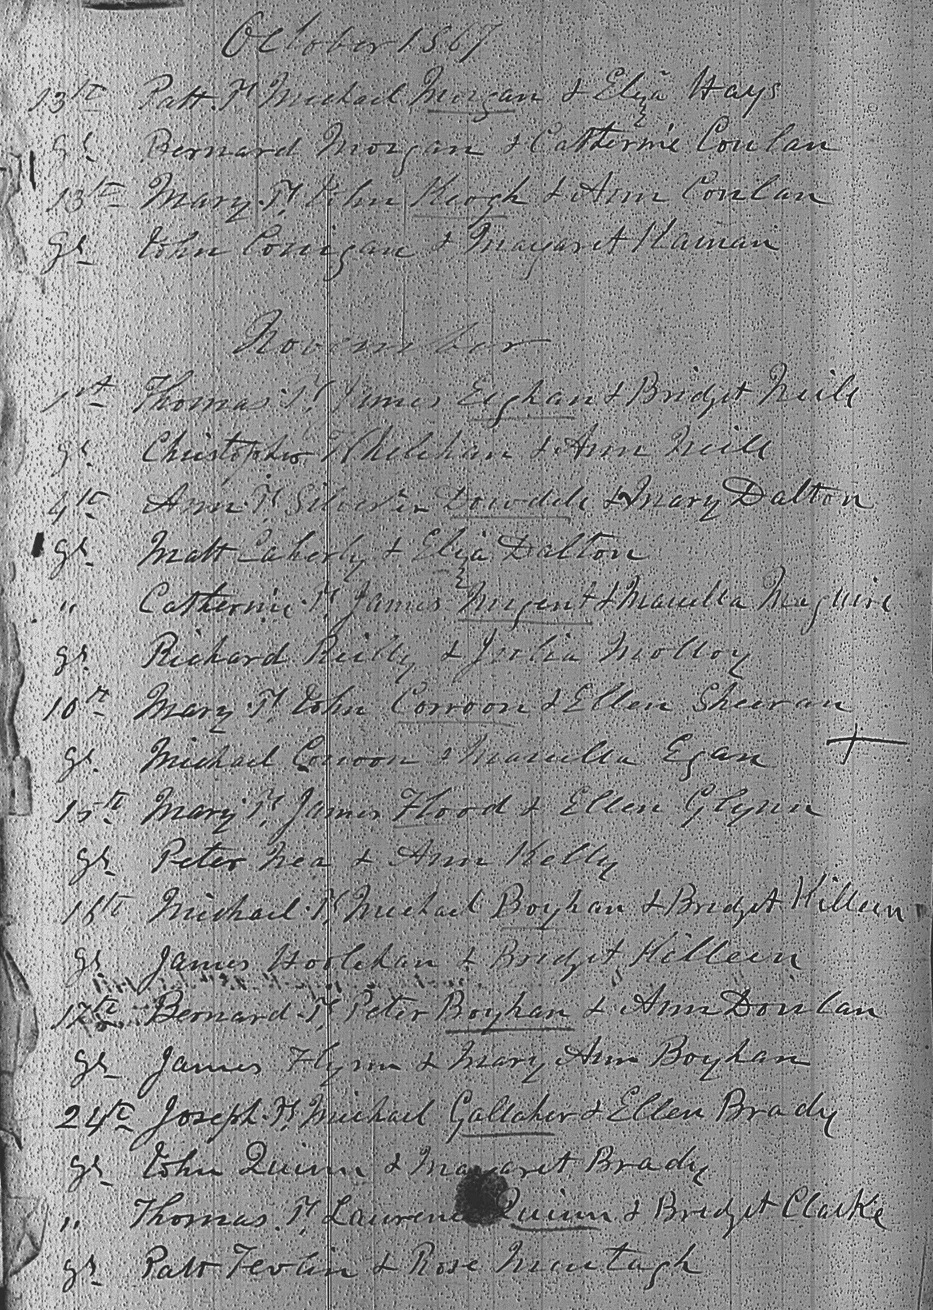 October 1867
13th Patt. F. Michael Morgan & Eliza Hays
gs. Bernard Morgan & Catherine Conlan
13th Mary. F. John Keogh & Ann Conlan
gs John Corrigan & Margaret
November
1st Thomas. F. James Eighan & Bridget Neill
gs. Christopher Whelehan & Ann Neill
4th Ann. F. Dowdell & Mary Dalton
gs. Matt & Eliza Dalton
" Catherine. F. James Nugent & Marcella Maguire
gs. Richard Reilly & Molloy
10th Mary. F. John Corroon & Ellen Sheeran
gs. Michael Corroon & Marcella Egan
15th Mary. F. James Flood & Ellen Glynn
gs. Peter Nea & Ann Kelly
Michael. F. Michael Boyhan & Bridget Killeen
gs. James Hoolehan & Bridget Killeen
17th Bernard. F. Peter Boyhan & Ann Donlan
gs James Flynn & Mary Ann Boyhan
24th Joseph. F. Michael Gallaher & Ellen Brady
gs John Quinn & Margaret Brady
" Thomas. F. Laurence Quinn & Bridget Clarke
gs. Patt & Rose Murtagh